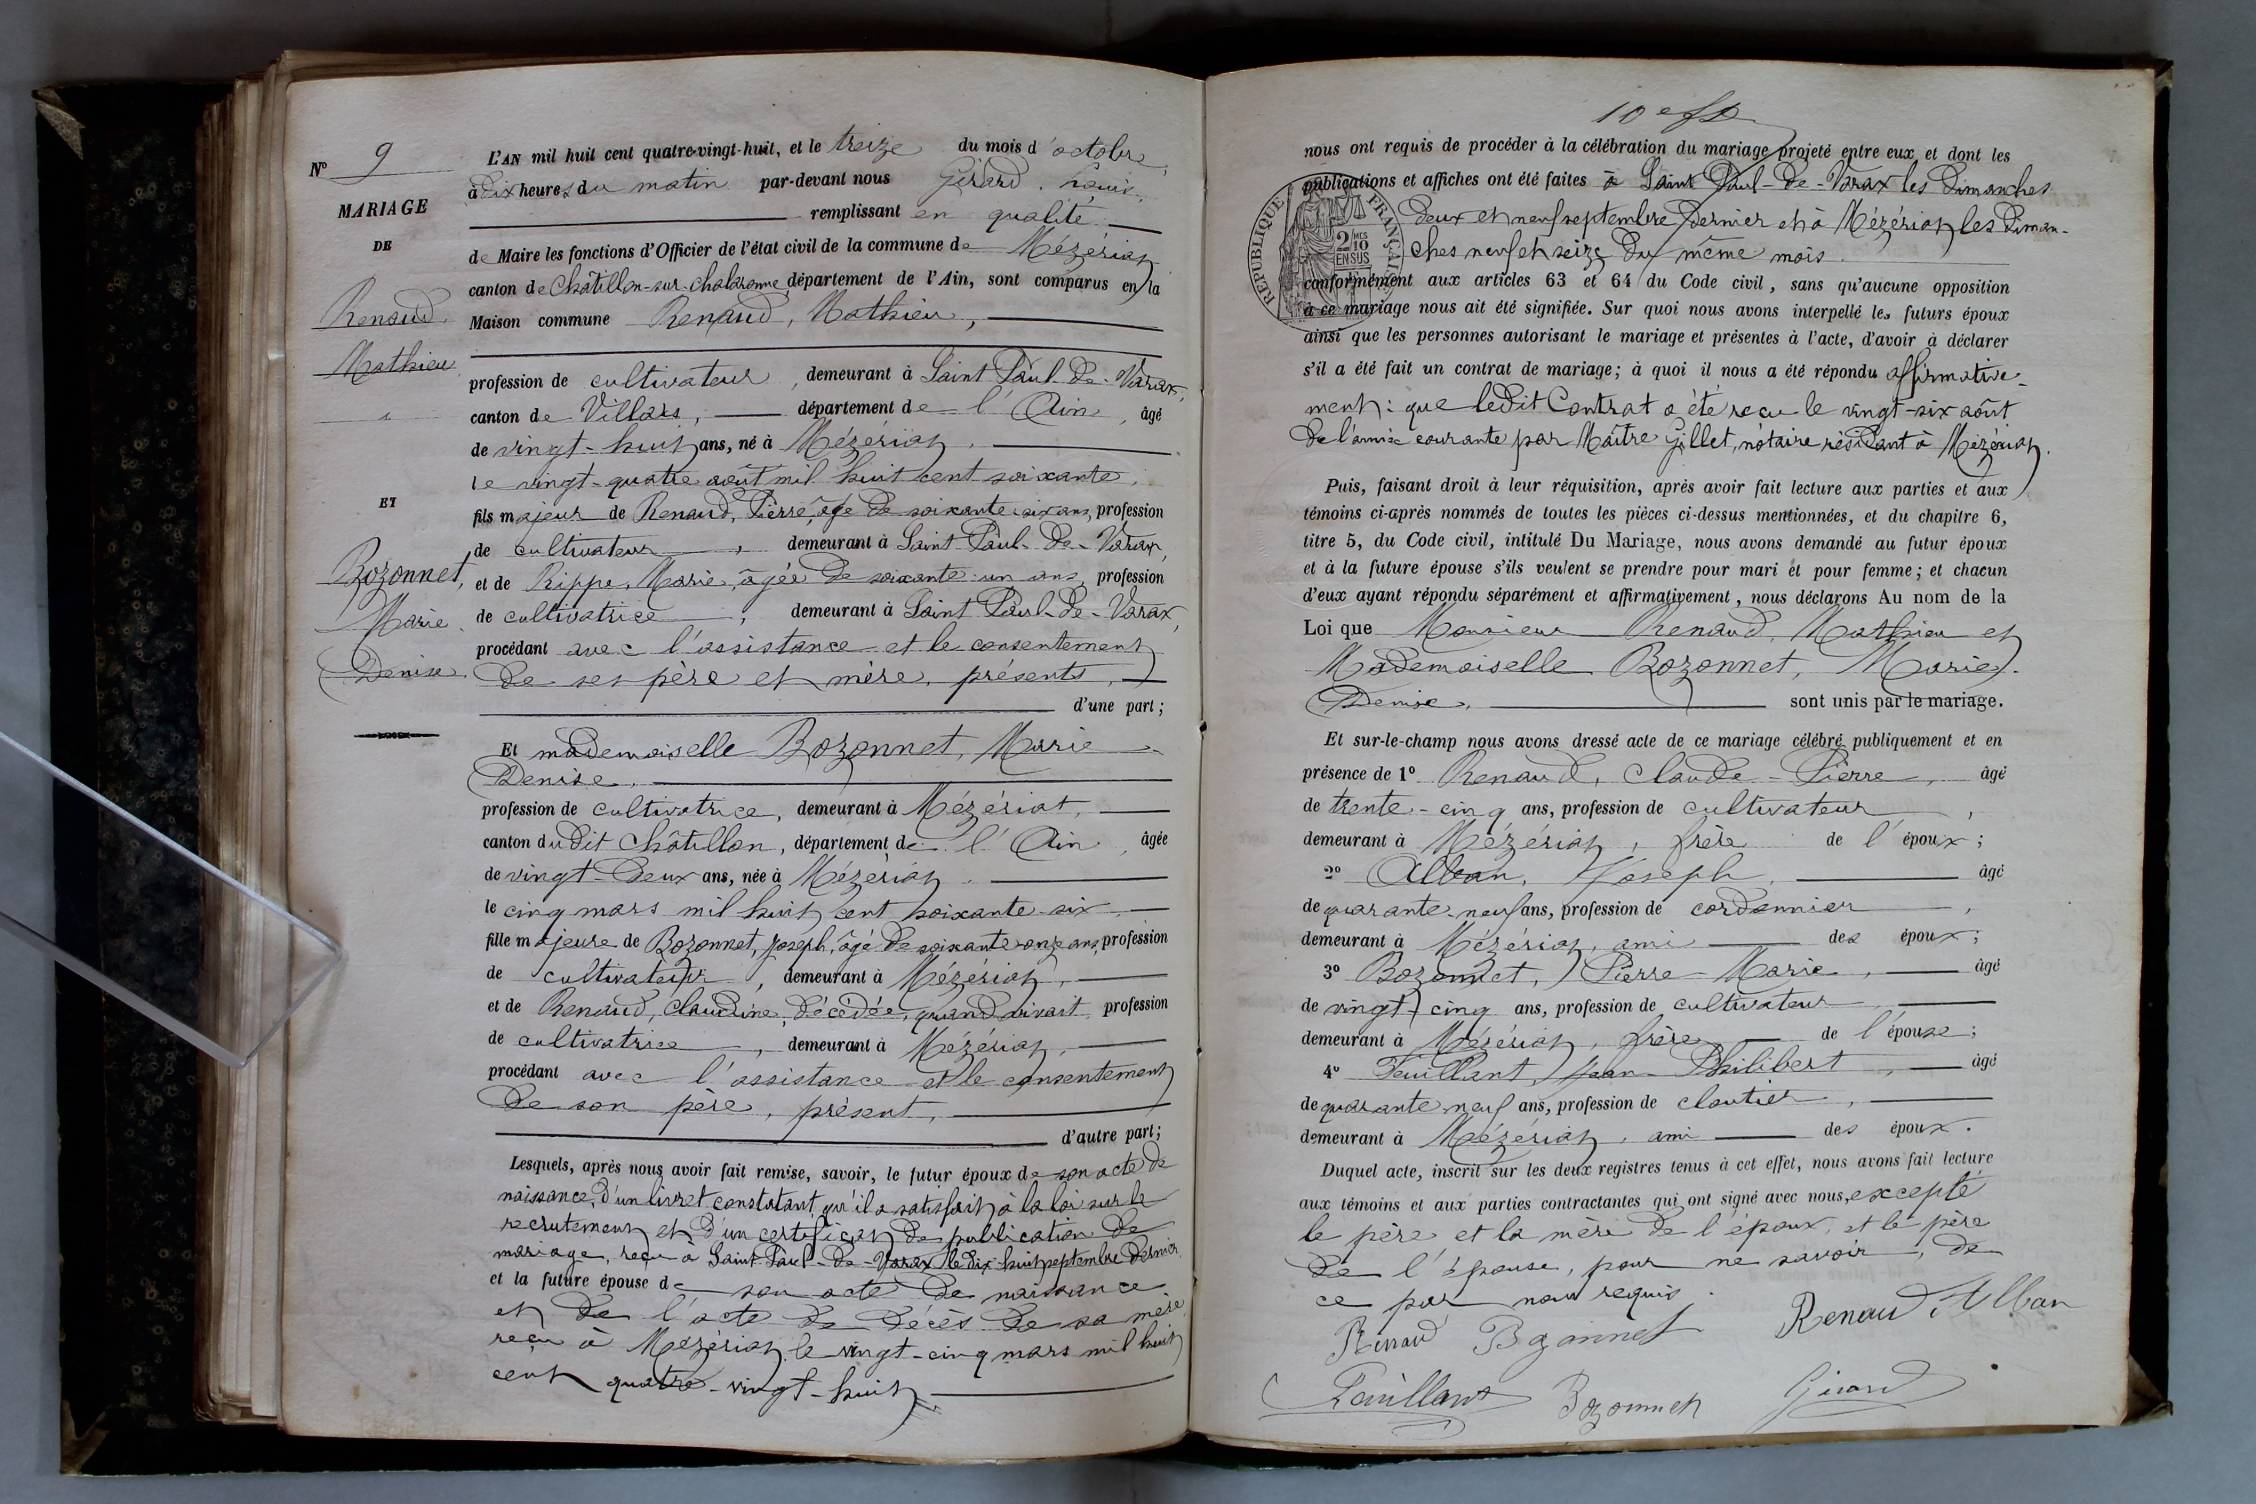 N° 9
MARIAGE
DE
Renaud
Mathieu
ET
Bozonnet,
Marie
Denise
L'AN mil huit cent quatre-vingt-huit, et le treize du mois d'octobre,
à dix heures du matin par-devant nous Gérard, Louis,
remplissant en qualité
de Maire les fonctions d'Officier de l'état civil de la commune de Mézériat
canton de Châtillon-sur-Chalaronne, département de l'Ain, sont comparus en la
Maison commune Renaud, Mathieu,
profession de cultivateur, demeurant à Saint Paul-de-Varax,
canton de Villars, département de l'Ain, âgé
de vingt-huit ans, né à Mézériat,
le vingt-quatre août mil huit cent soixante,
fils majeur de Renaud, Pierre, âgé de soixante-six ans, profession
de cultivateur, demeurant à Saint-Paul-de-Varax,
et de Rippe, Marie, âgée de soixante-un ans, profession
de cultivatrice, demeurant à Saint Paul-de-Varax,
procédant avec l'assistance et le consentement
de ses père et mère, présents,
d'une part;
Et mademoiselle Bozonnet, Marie
Denise,
profession de cultivatrice, demeurant à Mézériat,
canton dudit Châtillon, département de l'Ain, âgée
de vingt-deux ans, née à Mézériat,
le cinq mars mil huit cent soixante-six,
fille majeure de Bozonnet, Joseph, âgé de soixante-onze ans, profession
de cultivateur, demeurant à Mézériat,
et de Renaud, Claudine, décédée, quand vivait, profession
de cultivatrice, demeurant à Mézériat,
procédant avec l'assistance et le consentement
de son père, présent,
d'autre part;
Lesquels, après nous avoir fait remise, savoir, le futur époux de son acte de
naissance, d'un livret constatant qu'il a satisfait à la loi sur le
recrutement et d'un certificat de publication de
mariage, reçu à Saint-Paul-de-Varax le dix-huit septembre dernier
et la future épouse de son acte de naissance
et de l'acte de décès de sa mère
reçu à Mézériat le vingt-cinq mars mil huit
cent quatre-vingt-huit
10
nous ont requis de procéder à la célébration du mariage projeté entre eux et dont les
publications et affiches ont été faites à Saint Paul-de-Varax les dimanches
deux et neuf septembre dernier et à Mézériat les diman-
ches neuf et seize du même mois.
RÉPUBLIQUE FRANÇAISE
2/10 EN SUS
conformément aux articles 63 et 64 du Code civil, sans qu'aucune opposition
à ce mariage nous ait été signifiée. Sur quoi nous avons interpellé les futurs époux
ainsi que les personnes autorisant le mariage et présentes à l'acte, d'avoir à déclarer
s'il a été fait un contrat de mariage; à quoi il nous a été répondu affirmative-
ment: que ledit Contrat a été reçu le vingt-six août
de l'année courante par Maître Gillet, notaire résidant à Mézériat.
Puis, faisant droit à leur réquisition, après avoir fait lecture aux parties et aux
témoins ci-après nommés de toutes les pièces ci-dessus mentionnées, et du chapitre 6,
titre 5, du Code civil, intitulé Du Mariage, nous avons demandé au futur époux
et à la future épouse s'ils veulent se prendre pour mari et pour femme; et chacun
d'eux ayant répondu séparément et affirmativement, nous déclarons Au nom de la
Loi que Monsieur Renaud, Mathieu et
Mademoiselle Bozonnet, Marie
Denise, sont unis par le mariage.
Et sur-le-champ nous avons dressé acte de ce mariage célébré publiquement et en
présence de 1° Renaud, Claude-Pierre, âgé
de trente-cinq ans, profession de cultivateur,
demeurant à Mézériat, frère de l'époux;
2° Alban, Joseph, âgé
de quarante-neuf ans, profession de cordonnier,
demeurant à Mézériat, ami des époux;
3° Bozonnet, Pierre-Marie, âgé
de vingt-cinq ans, profession de cultivateur,
demeurant à Mézériat, frère de l'épouse;
4° Feuillant, Jean-Philibert, âgé
de quarante-neuf ans, profession de cloutier,
demeurant à Mézériat, ami des époux.
Duquel acte, inscrit sur les deux registres tenus à cet effet, nous avons fait lecture
aux témoins et aux parties contractantes qui ont signé avec nous, excepté
le père et la mère de l'époux, et le père
de l'épouse, pour ne savoir, de
ce par nous requis.
Renaud Bozonnet Renaud Alban
Feuillant Bozonnet Gérard